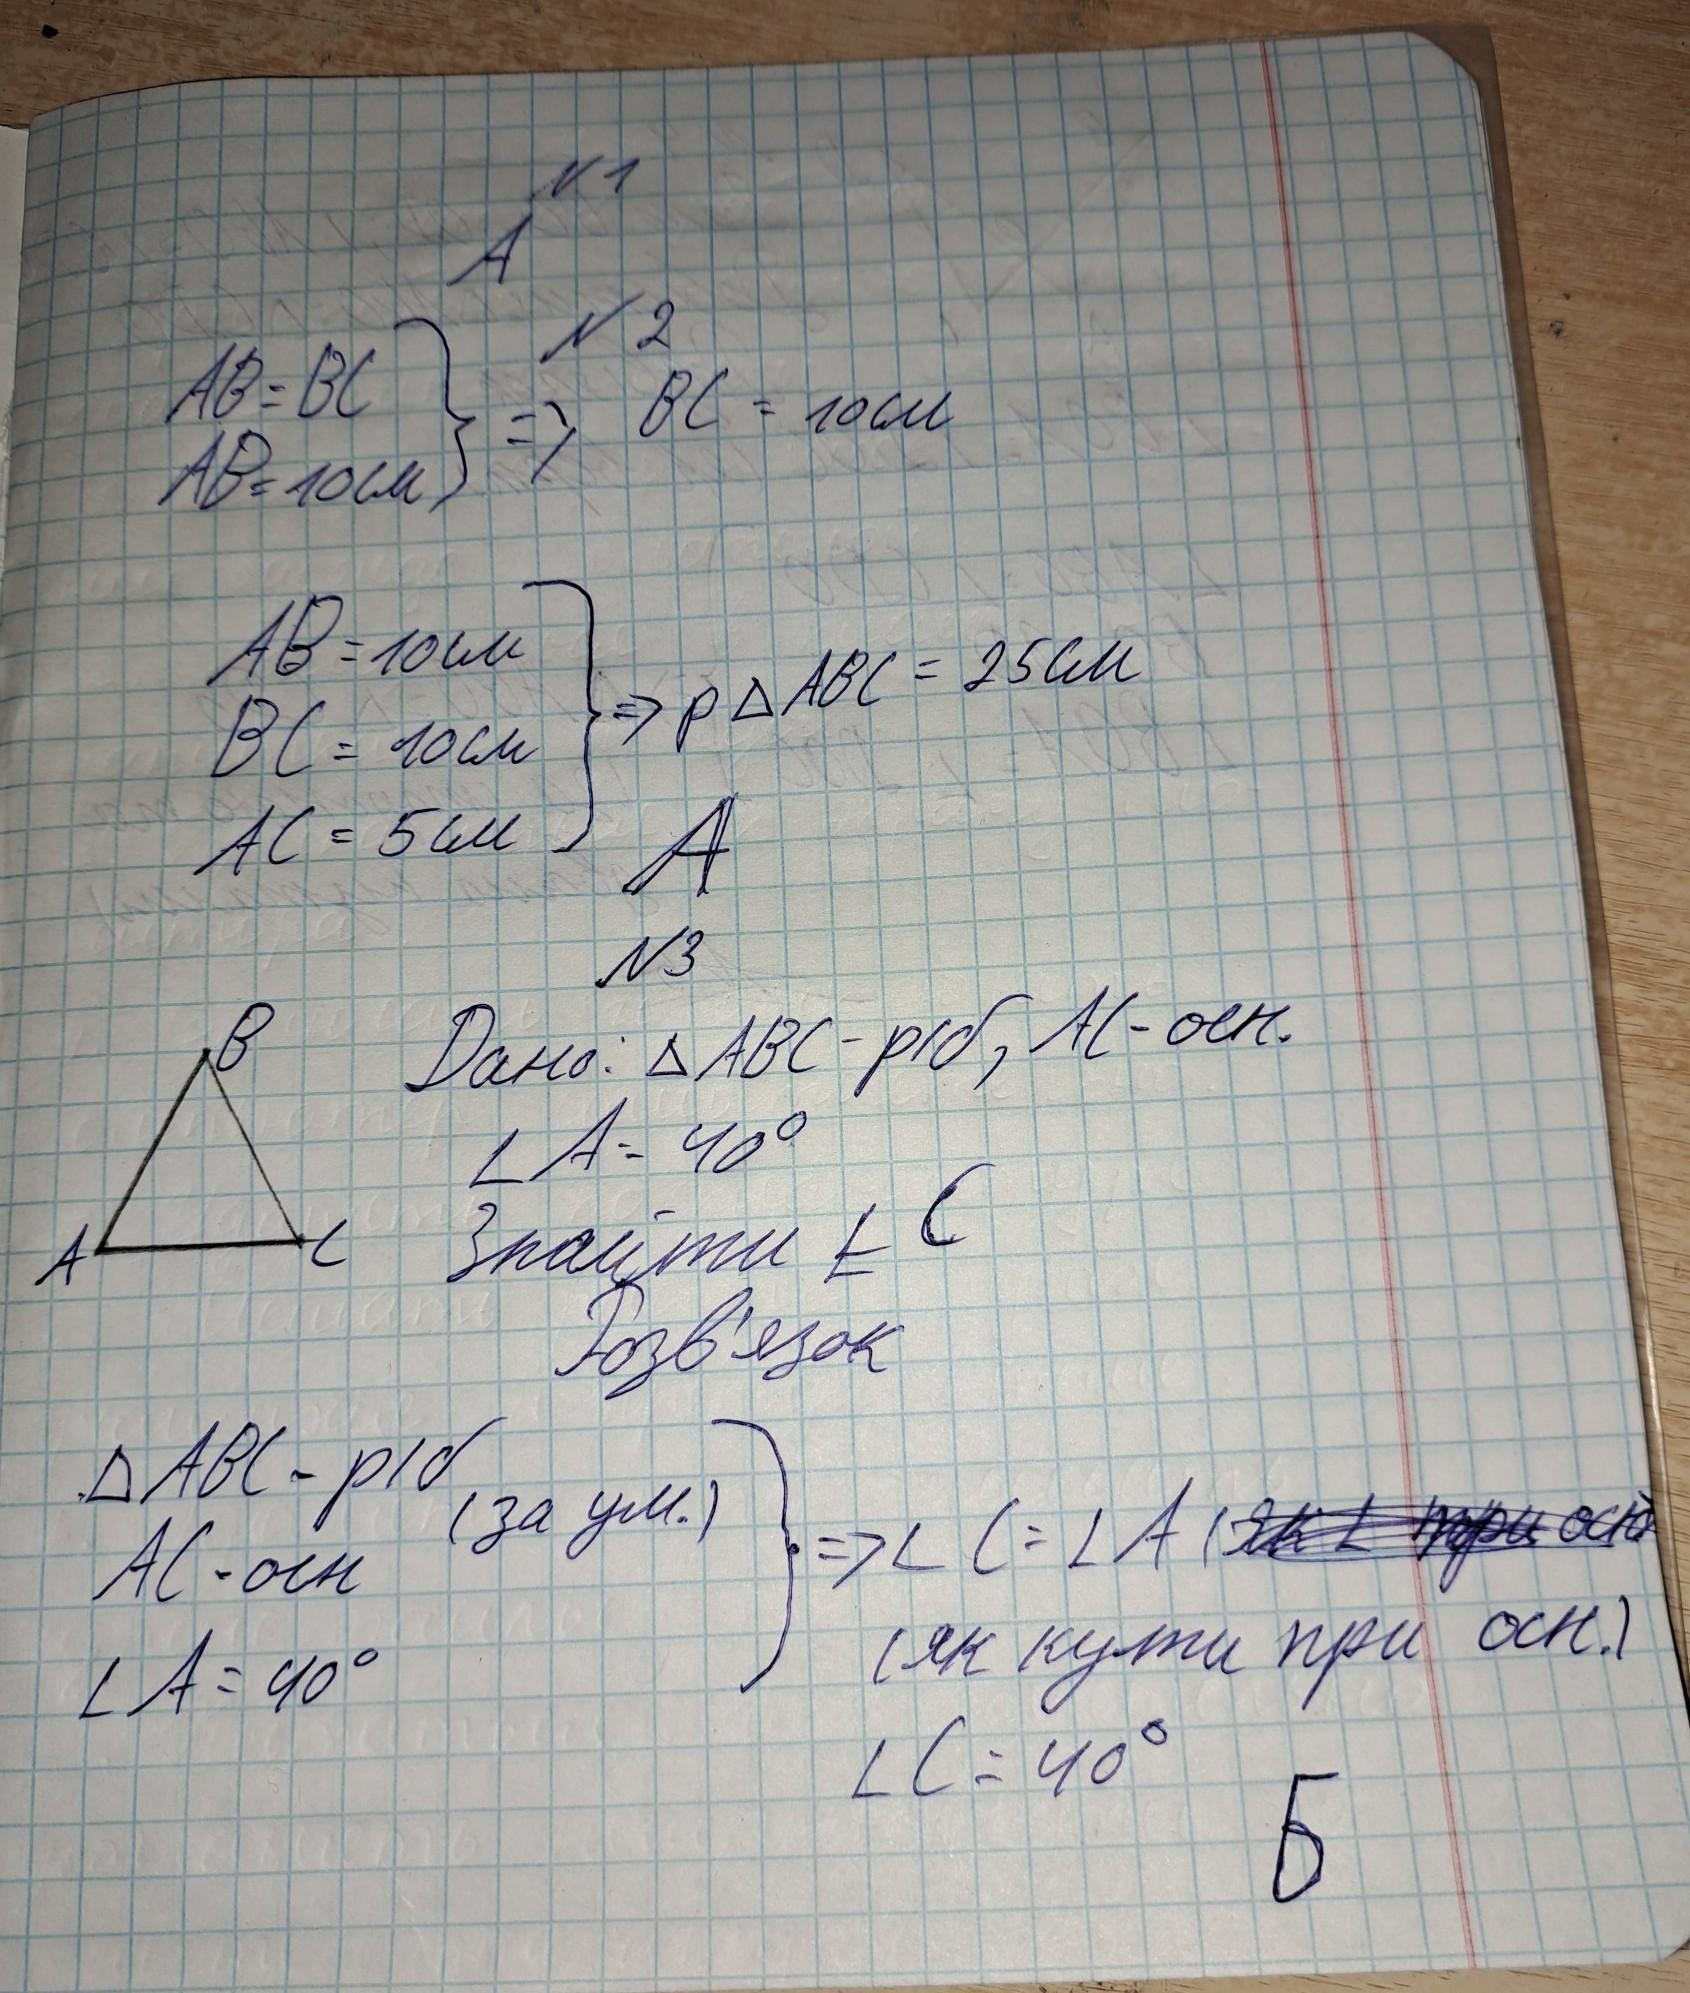 N 1
A
N 2
AB = BC
AB = 10см
=> BC = 10см
AB = 10см
BC = 10см
AC = 5см
=> P △ ABC = 25см
A
N3
B
A
C
Дано: △ ABC - р/б, AC - осн.
∠ A = 40°
Знайти ∠ C
Розв'язок
△ ABC - р/б
(за ум.)
AC - осн
∠ A = 40°
=> ∠ C = ∠ A (як ∠ при осн
(як кути при осн.)
∠ C = 40°
Б